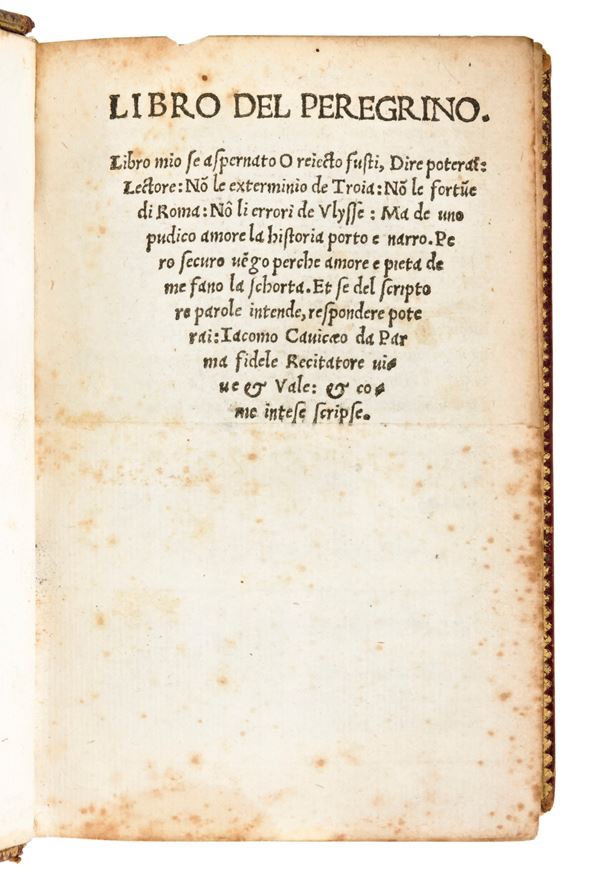 LIBRO DEL PEREGRINO.
Libro mio se aspernato O reiecto fusti, Dire poterai:
Lectore: Nõ le exterminio de Troia: Nõ le fortũe
di Roma: Nõ li errori de Vlysse : Ma de uno
pudico amore la historia porto e narro. Pe
ro securo uẽgo perche amore e pieta de
me fano la schorta. Et se del scripto
re parole intende, respondere pote
rai: Iacomo Cauicæo da Par
ma fidele Recitatore ui⸗
ue & Vale: & co⸗
me intese scripse.